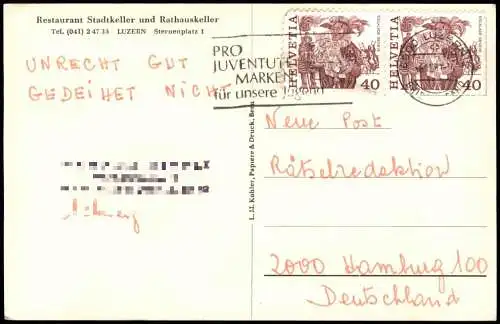 Restaurant Stadtkeller und Rathauskeller
Tel. (041) 2 47 33 LUZERN Sternenplatz 1
UNRECHT GUT
GEDEIHET NICHT
PRO
JUVENTUTE
MARKEN
für unsere Jugend
HELVETIA
40
HELVETIA
40
L. JH. Kohler, Papiere & Druck, Bern
Neue Post
Rätselredaktion
2000 Hamburg 100
Deutschland